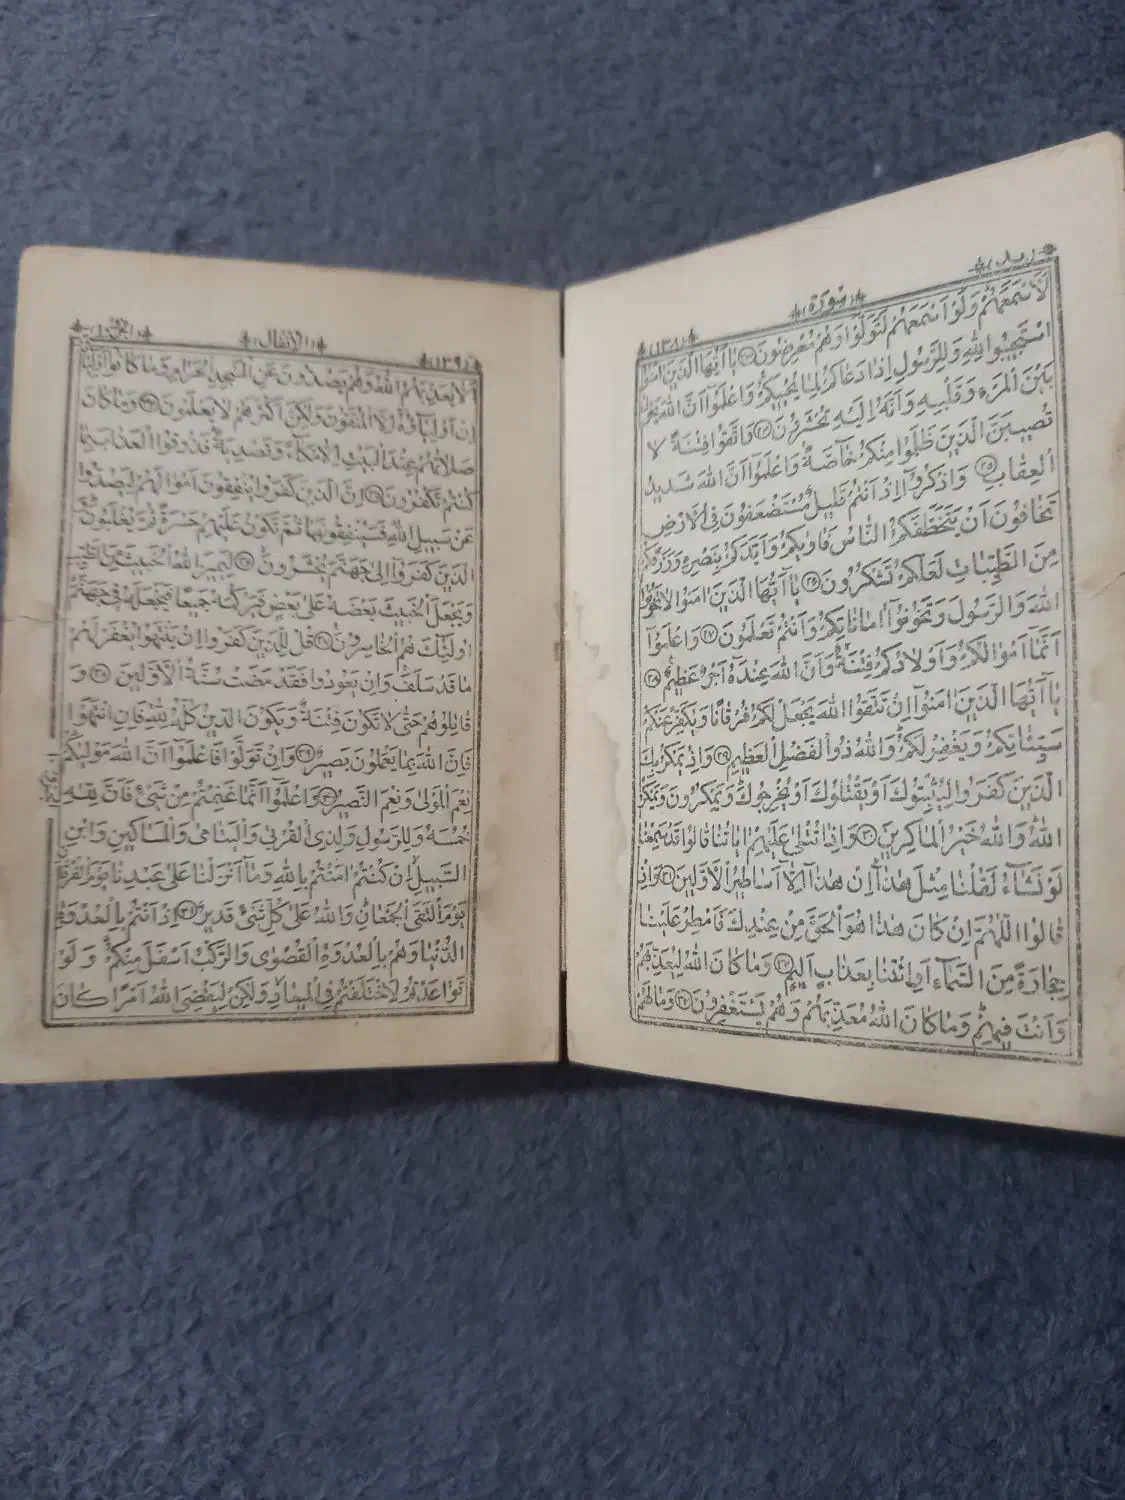 سُورَة
١٣٨
لَاَسْمَعَهُمْ وَلَوْ اَسْمَعَهُمْ لَتَوَلَّوْا وَهُمْ مُعْرِضُونَ ٢٣ يَا اَيُّهَا الَّذِينَ اٰمَنُوا
اسْتَجِيبُوا لِلّٰهِ وَلِلرَّسُولِ اِذَا دَعَاكُمْ لِمَا يُحْيِيكُمْ وَاعْلَمُوا اَنَّ اللّٰهَ يَحُولُ
بَيْنَ الْمَرْءِ وَقَلْبِهِ وَاَنَّهُ اِلَيْهِ تُحْشَرُونَ ٢٤ وَاتَّقُوا فِتْنَةً لَا
تُصِيبَنَّ الَّذِينَ ظَلَمُوا مِنْكُمْ خَاصَّةً وَاعْلَمُوا اَنَّ اللّٰهَ شَدِيدُ
الْعِقَابِ ٢٥ وَاذْكُرُوا اِذْ اَنْتُمْ قَلِيلٌ مُسْتَضْعَفُونَ فِي الْاَرْضِ
تَخَافُونَ اَنْ يَتَخَطَّفَكُمُ النَّاسُ فَاٰوٰيكُمْ وَاَيَّدَكُمْ بِنَصْرِهِ وَرَزَقَكُمْ
مِنَ الطَّيِّبَاتِ لَعَلَّكُمْ تَشْكُرُونَ ٢٦ يَا اَيُّهَا الَّذِينَ اٰمَنُوا لَا تَخُونُوا
اللّٰهَ وَالرَّسُولَ وَتَخُونُوا اَمَانَاتِكُمْ وَاَنْتُمْ تَعْلَمُونَ ٢٧ وَاعْلَمُوا
اَنَّمَا اَمْوَالُكُمْ وَاَوْلَادُكُمْ فِتْنَةٌ وَاَنَّ اللّٰهَ عِنْدَهُ اَجْرٌ عَظِيمٌ ٢٨
يَا اَيُّهَا الَّذِينَ اٰمَنُوا اِنْ تَتَّقُوا اللّٰهَ يَجْعَلْ لَكُمْ فُرْقَانًا وَيُكَفِّرْ عَنْكُمْ
سَيِّئَاتِكُمْ وَيَغْفِرْ لَكُمْ وَاللّٰهُ ذُو الْفَضْلِ الْعَظِيمِ ٢٩ وَاِذْ يَمْكُرُ بِكَ
الَّذِينَ كَفَرُوا لِيُثْبِتُوكَ اَوْ يَقْتُلُوكَ اَوْ يُخْرِجُوكَ وَيَمْكُرُونَ وَيَمْكُرُ
اللّٰهُ وَاللّٰهُ خَيْرُ الْمَاكِرِينَ ٣٠ وَاِذَا تُتْلٰى عَلَيْهِمْ اٰيَاتُنَا قَالُوا قَدْ سَمِعْنَا
لَوْ نَشَاءُ لَقُلْنَا مِثْلَ هٰذَا اِنْ هٰذَا اِلَّا اَسَاطِيرُ الْاَوَّلِينَ ٣١ وَاِذْ
قَالُوا اللّٰهُمَّ اِنْ كَانَ هٰذَا هُوَ الْحَقَّ مِنْ عِنْدِكَ فَاَمْطِرْ عَلَيْنَا
حِجَارَةً مِنَ السَّمَاءِ اَوِ ائْتِنَا بِعَذَابٍ اَلِيمٍ ٣٢ وَمَا كَانَ اللّٰهُ لِيُعَذِّبَهُمْ
وَاَنْتَ فِيهِمْ وَمَا كَانَ اللّٰهُ مُعَذِّبَهُمْ وَهُمْ يَسْتَغْفِرُونَ ٣٣ وَمَا لَهُمْ
١٣٩
الْاَنْفَال
اَلَّا يُعَذِّبَهُمُ اللّٰهُ وَهُمْ يَصُدُّونَ عَنِ الْمَسْجِدِ الْحَرَامِ وَمَا كَانُوا اَوْلِيَاءَهُ
اِنْ اَوْلِيَاؤُهُ اِلَّا الْمُتَّقُونَ وَلٰكِنَّ اَكْثَرَهُمْ لَا يَعْلَمُونَ ٣٤ وَمَا كَانَ
صَلَاتُهُمْ عِنْدَ الْبَيْتِ اِلَّا مُكَاءً وَتَصْدِيَةً فَذُوقُوا الْعَذَابَ بِمَا
كُنْتُمْ تَكْفُرُونَ ٣٥ اِنَّ الَّذِينَ كَفَرُوا يُنْفِقُونَ اَمْوَالَهُمْ لِيَصُدُّوا
عَنْ سَبِيلِ اللّٰهِ فَسَيُنْفِقُونَهَا ثُمَّ تَكُونُ عَلَيْهِمْ حَسْرَةً ثُمَّ يُغْلَبُونَ وَ
الَّذِينَ كَفَرُوا اِلٰى جَهَنَّمَ يُحْشَرُونَ ٣٦ لِيَمِيزَ اللّٰهُ الْخَبِيثَ مِنَ الطَّيِّبِ
وَيَجْعَلَ الْخَبِيثَ بَعْضَهُ عَلٰى بَعْضٍ فَيَرْكُمَهُ جَمِيعًا فَيَجْعَلَهُ فِي جَهَنَّمَ
اُولٰئِكَ هُمُ الْخَاسِرُونَ ٣٧ قُلْ لِلَّذِينَ كَفَرُوا اِنْ يَنْتَهُوا يُغْفَرْ لَهُمْ
مَا قَدْ سَلَفَ وَاِنْ يَعُودُوا فَقَدْ مَضَتْ سُنَّةُ الْاَوَّلِينَ ٣٨ وَ
قَاتِلُوهُمْ حَتّٰى لَا تَكُونَ فِتْنَةٌ وَيَكُونَ الدِّينُ كُلُّهُ لِلّٰهِ فَاِنِ انْتَهَوْا
فَاِنَّ اللّٰهَ بِمَا يَعْمَلُونَ بَصِيرٌ ٣٩ وَاِنْ تَوَلَّوْا فَاعْلَمُوا اَنَّ اللّٰهَ مَوْلٰيكُمْ
نِعْمَ الْمَوْلٰى وَنِعْمَ النَّصِيرُ ٤٠ وَاعْلَمُوا اَنَّمَا غَنِمْتُمْ مِنْ شَيْءٍ فَاَنَّ لِلّٰهِ
خُمُسَهُ وَلِلرَّسُولِ وَلِذِي الْقُرْبٰى وَالْيَتَامٰى وَالْمَسَاكِينِ وَابْنِ
السَّبِيلِ اِنْ كُنْتُمْ اٰمَنْتُمْ بِاللّٰهِ وَمَا اَنْزَلْنَا عَلٰى عَبْدِنَا يَوْمَ الْفُرْقَانِ
يَوْمَ الْتَقَى الْجَمْعَانِ وَاللّٰهُ عَلٰى كُلِّ شَيْءٍ قَدِيرٌ ٤١ اِذْ اَنْتُمْ بِالْعُدْوَةِ
الدُّنْيَا وَهُمْ بِالْعُدْوَةِ الْقُصْوٰى وَالرَّكْبُ اَسْفَلَ مِنْكُمْ وَلَوْ
تَوَاعَدْتُمْ لَاخْتَلَفْتُمْ فِي الْمِيعَادِ وَلٰكِنْ لِيَقْضِيَ اللّٰهُ اَمْرًا كَانَ